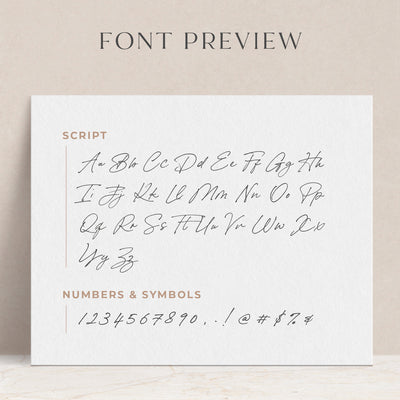 FONT PREVIEW
SCRIPT
Aa Bb Cc Dd Ee Ff Gg Hh
Ii Jj Kk Ll Mm Nn Oo Pp
Qq Rr Ss Tt Uu Vv Ww Xx
Yy Zz
NUMBERS & SYMBOLS
1234567890,.!@#$%&